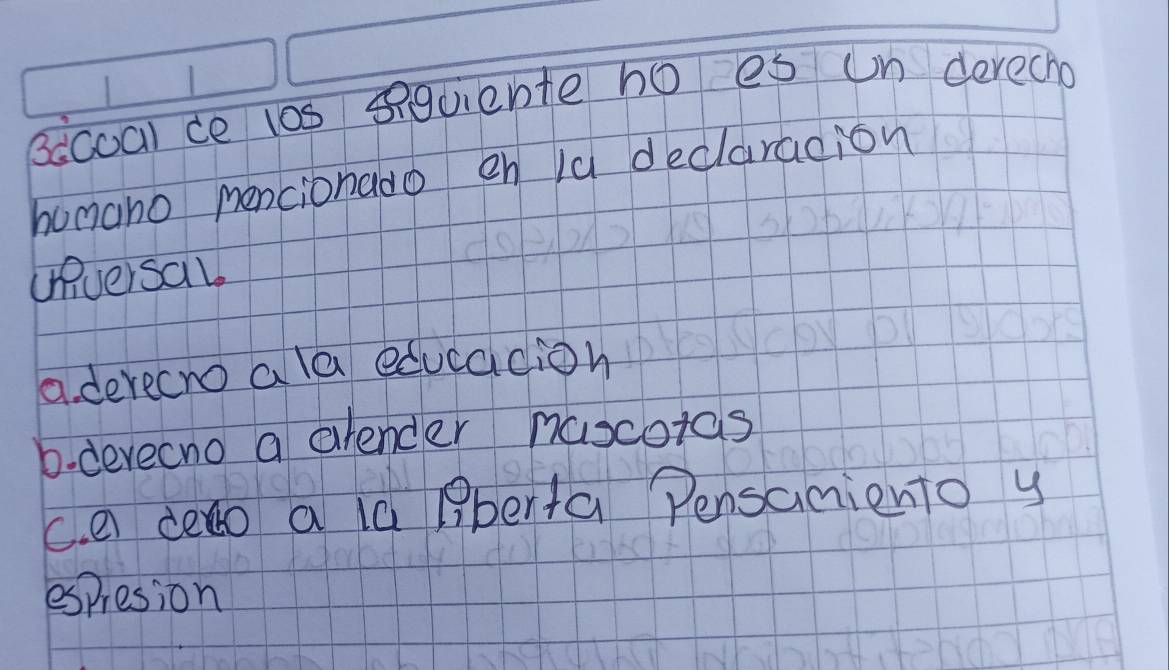 3¿coal de los siguiente no es un derecho
humano mencionado en la declaracion
universal.
a.derecho a la educacion
b.derecho a atender mascotas
c.el a la liberta Pensamiento y
espresion